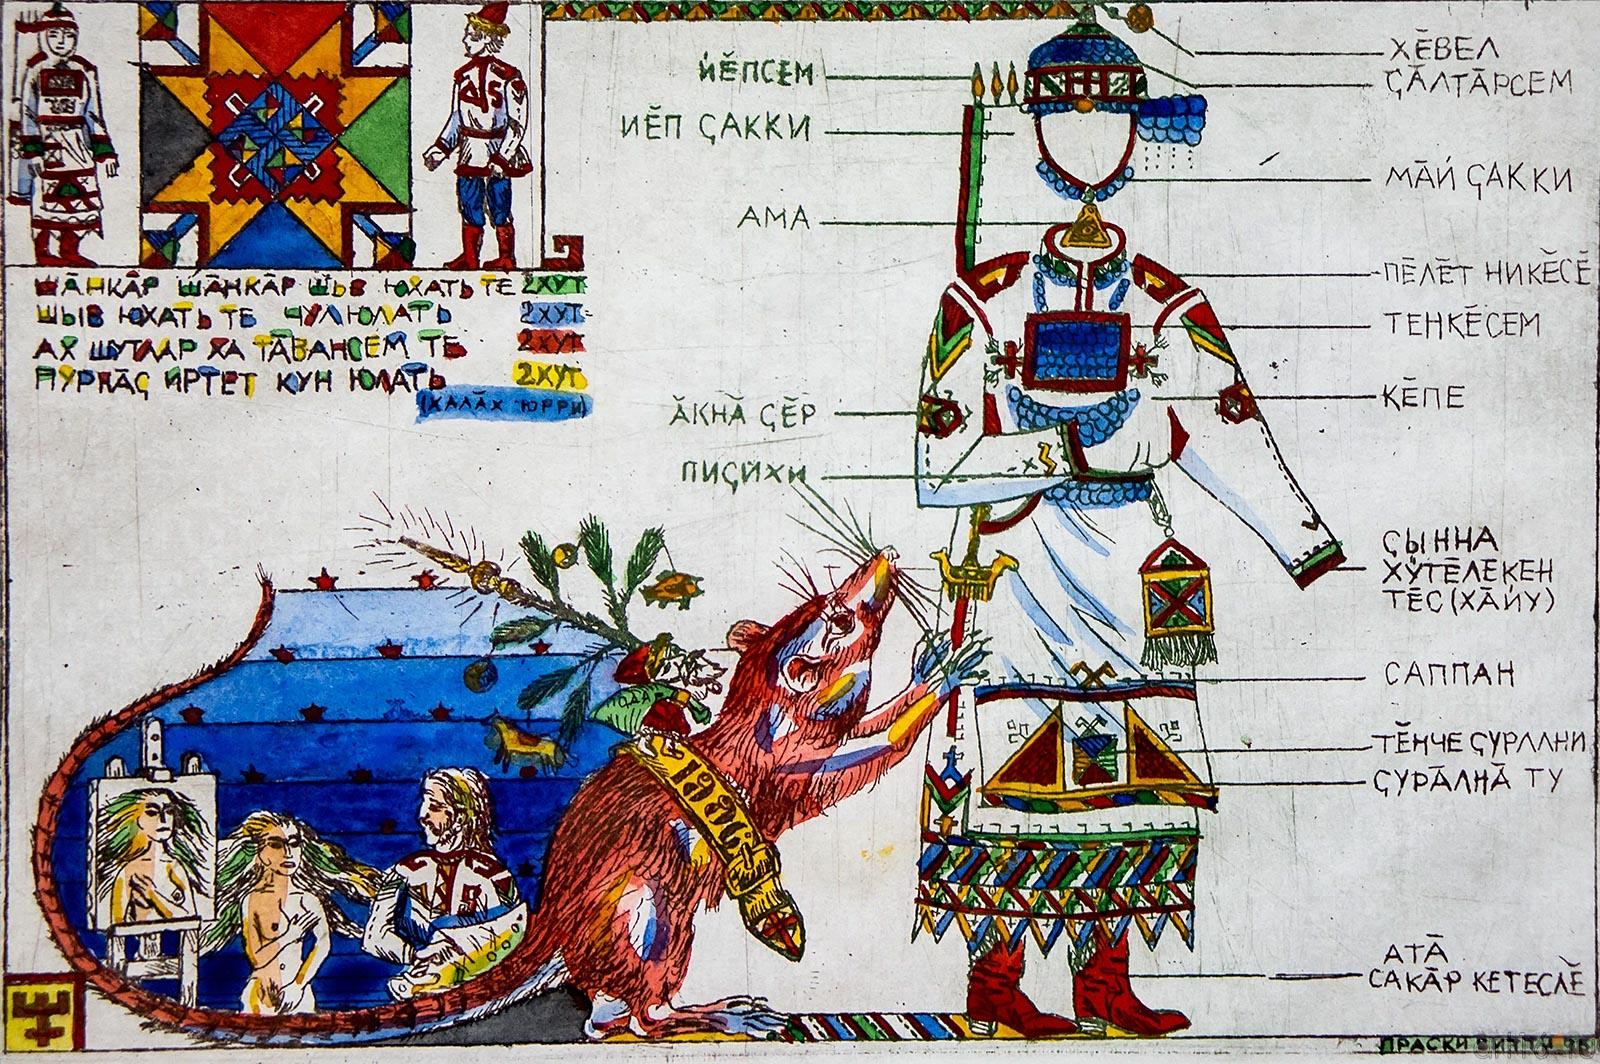 ШĀНКĀР ШĀНКĀР ШЫВ ЮХАТЬ ТЕ 2ХУТ
ШЫВ ЮХАТЬ ТЕ ЧУЛ ЮЛАТЬ 2ХУТ
АХ ШУТЛАР ХА ТĀВАНСЕМ ТЕ 2ХУТ
ПУРНĀҪ ИРТЕТ КУН ЮЛАТЬ 2ХУТ
(ХАЛĀХ ЮРРИ)
ЙӖПСЕМ
ЙӖП ҪАККИ
АМА
ĀКНĀ ҪӖР
ПИҪИХИ
ХӖВЕЛ
ҪĀЛТĀРСЕМ
МĀЙ ҪАККИ
ПӖЛӖТ НИКӖСӖ
ТЕНКӖСЕМ
КӖПЕ
ҪЫННА
ХӲТӖЛЕКЕН
ТӖС (ХĀЙУ)
САППАН
ТӖНЧЕ ҪУРАЛНИ
ҪУРĀЛНĀ ТУ
АТĀ
САКĀР КЕТЕСЛӖ
1996
ПРАСКИ ВИТТИ 96